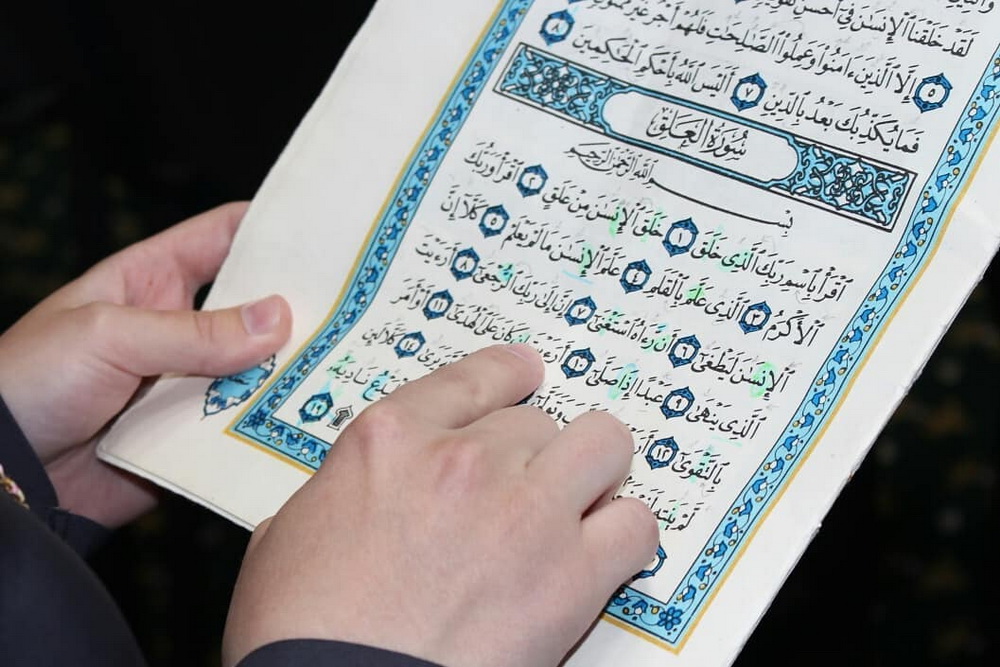 لَقَدْ خَلَقْنَا ٱلْإِنسَٰنَ فِىٓ أَحْسَنِ
٥ إِلَّا ٱلَّذِينَ ءَامَنُوا۟ وَعَمِلُوا۟ ٱلصَّٰلِحَٰتِ فَلَهُمْ أَجْرٌ غَيْرُ مَمْنُونٍ
فَمَا يُكَذِّبُكَ بَعْدُ بِٱلدِّينِ ٧ أَلَيْسَ ٱللَّهُ بِأَحْكَمِ ٱلْحَٰكِمِينَ ٨
سُورَةُ العَلَقِ
بِسْمِ ٱللَّهِ ٱلرَّحْمَٰنِ ٱلرَّحِيمِ
ٱقْرَأْ بِٱسْمِ رَبِّكَ ٱلَّذِى خَلَقَ ١ خَلَقَ ٱلْإِنسَٰنَ مِنْ عَلَقٍ ٢ ٱقْرَأْ وَرَبُّكَ
ٱلْأَكْرَمُ ٣ ٱلَّذِى عَلَّمَ بِٱلْقَلَمِ ٤ عَلَّمَ ٱلْإِنسَٰنَ مَا لَمْ يَعْلَمْ ٥ كَلَّآ إِنَّ
ٱلْإِنسَٰنَ لَيَطْغَىٰٓ ٦ أَن رَّءَاهُ ٱسْتَغْنَىٰٓ ٧ إِنَّ إِلَىٰ رَبِّكَ ٱلرُّجْعَىٰٓ ٨ أَرَءَيْتَ
ٱلَّذِى يَنْهَىٰ ٩ عَبْدًا إِذَا صَلَّىٰٓ ١٠ كَانَ عَلَى ٱلْهُدَىٰٓ ١١ أَوْ أَمَرَ
بِٱلتَّقْوَىٰٓ ١٢ وَتَوَلَّىٰٓ ١٤ كَلَّا لَئِن
لَمْ يَنتَهِ نَاصِيَةٍ
١٩